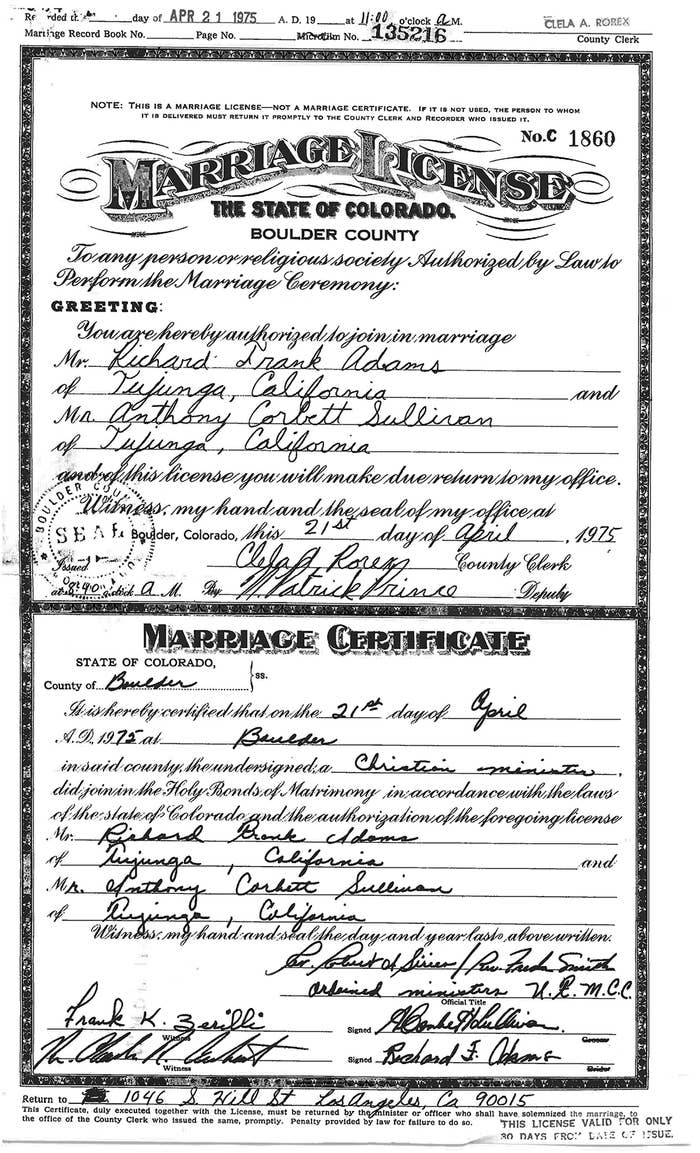 day of APR 21 1975 A. D. 19 at 11:00 o'clock A M. CLELA A. ROREX
Marriage Record Book No. Page No. Microfilm No. 135216 County Clerk
NOTE: THIS IS A MARRIAGE LICENSE—NOT A MARRIAGE CERTIFICATE. IF IT IS NOT USED, THE PERSON TO WHOM
IT IS DELIVERED MUST RETURN IT PROMPTLY TO THE COUNTY CLERK AND RECORDER WHO ISSUED IT.
No. C 1860
MARRIAGE LICENSE
THE STATE OF COLORADO.
BOULDER COUNTY
To any person or religious society Authorized by Law to
Perform the Marriage Ceremony:
GREETING:
You are hereby authorized to join in marriage
Mr. Richard Frank Adams
of Tujunga, California and
Mr. Anthony Corbett Sullivan
of Tujunga, California
and of this license you will make due return to my office.
Witness, my hand and the seal of my office at
BOULDER
SEAL
Boulder, Colorado, this 21st day of April, 1975
Issued Clela Rorex County Clerk
at o'clock A M. By Patrick Prince Deputy
MARRIAGE CERTIFICATE
STATE OF COLORADO,
County of Boulder ss.
It is hereby certified that on the 21st day of April
A.D. 1975 at Boulder
in said county, the undersigned, a Christian minister,
did join in the Holy Bonds of Matrimony in accordance with the laws
of the state of Colorado and the authorization of the foregoing license
Mr. Richard Frank Adams
of Tujunga, California and
Mr. Anthony Corbett Sullivan
of Tujunga, California
Witness, my hand and seal the day and year last above written.
Robert Sirico / Rev. Freda Smith
ordained ministers U.F.M.C.C.
Official Title
Frank K. Zerilli Signed A Corbett Sullivan
Witness Groom
Signed Richard F. Adams
Witness Bride
Return to 1046 S. Hill St Los Angeles, Ca 90015
This Certificate, duly executed together with the License, must be returned by the minister or officer who shall have solemnized the marriage, to
the office of the County Clerk who issued the same, promptly. Penalty provided by law for failure to do so.
THIS LICENSE VALID FOR ONLY
30 DAYS FROM DATE OF ISSUE.